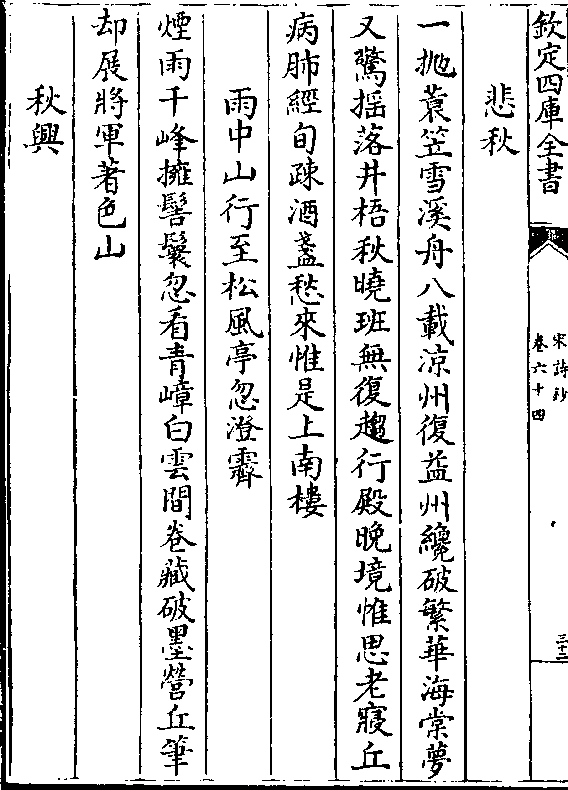 欽定四庫全書
宋詩鈔
卷六十四
三十二
悲秋
一抛蓑笠雪溪舟八載涼州復益州纔破繁華海棠夢
又驚揺落井梧秋曉班無復趨行殿晩境惟思老寢丘
病肺經旬疎酒盞愁來惟是上南樓
雨中山行至松風亭忽澄霽
煙雨千峰擁髻鬟忽看青嶂白雲間卷藏破墨營丘筆
却展將軍著色山
秋興